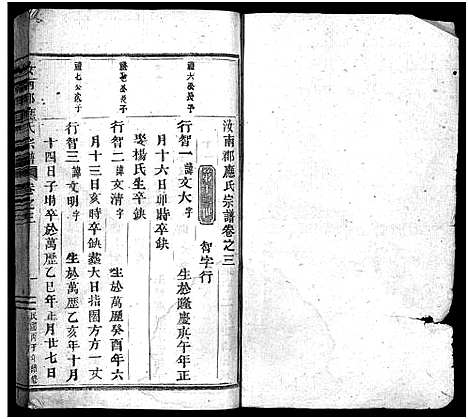 汝南郡應氏宗譜卷之三
智字行
德六公長子
行智一 諱文大 字 生於隆慶庚午年正
月十六日卯時卒缺
娶楊氏生卒缺
德七公長子
行智二 諱文清 字 生於萬歷癸酉年六
月十三日亥時卒缺墓大日指園方方一丈
德七公次子
行智三 諱文明 字 生於萬歷乙亥年十月
十四日子時卒於萬歷乙巳年正月廿七日
汝南郡應氏宗譜 卷之三 一
民國丙子年